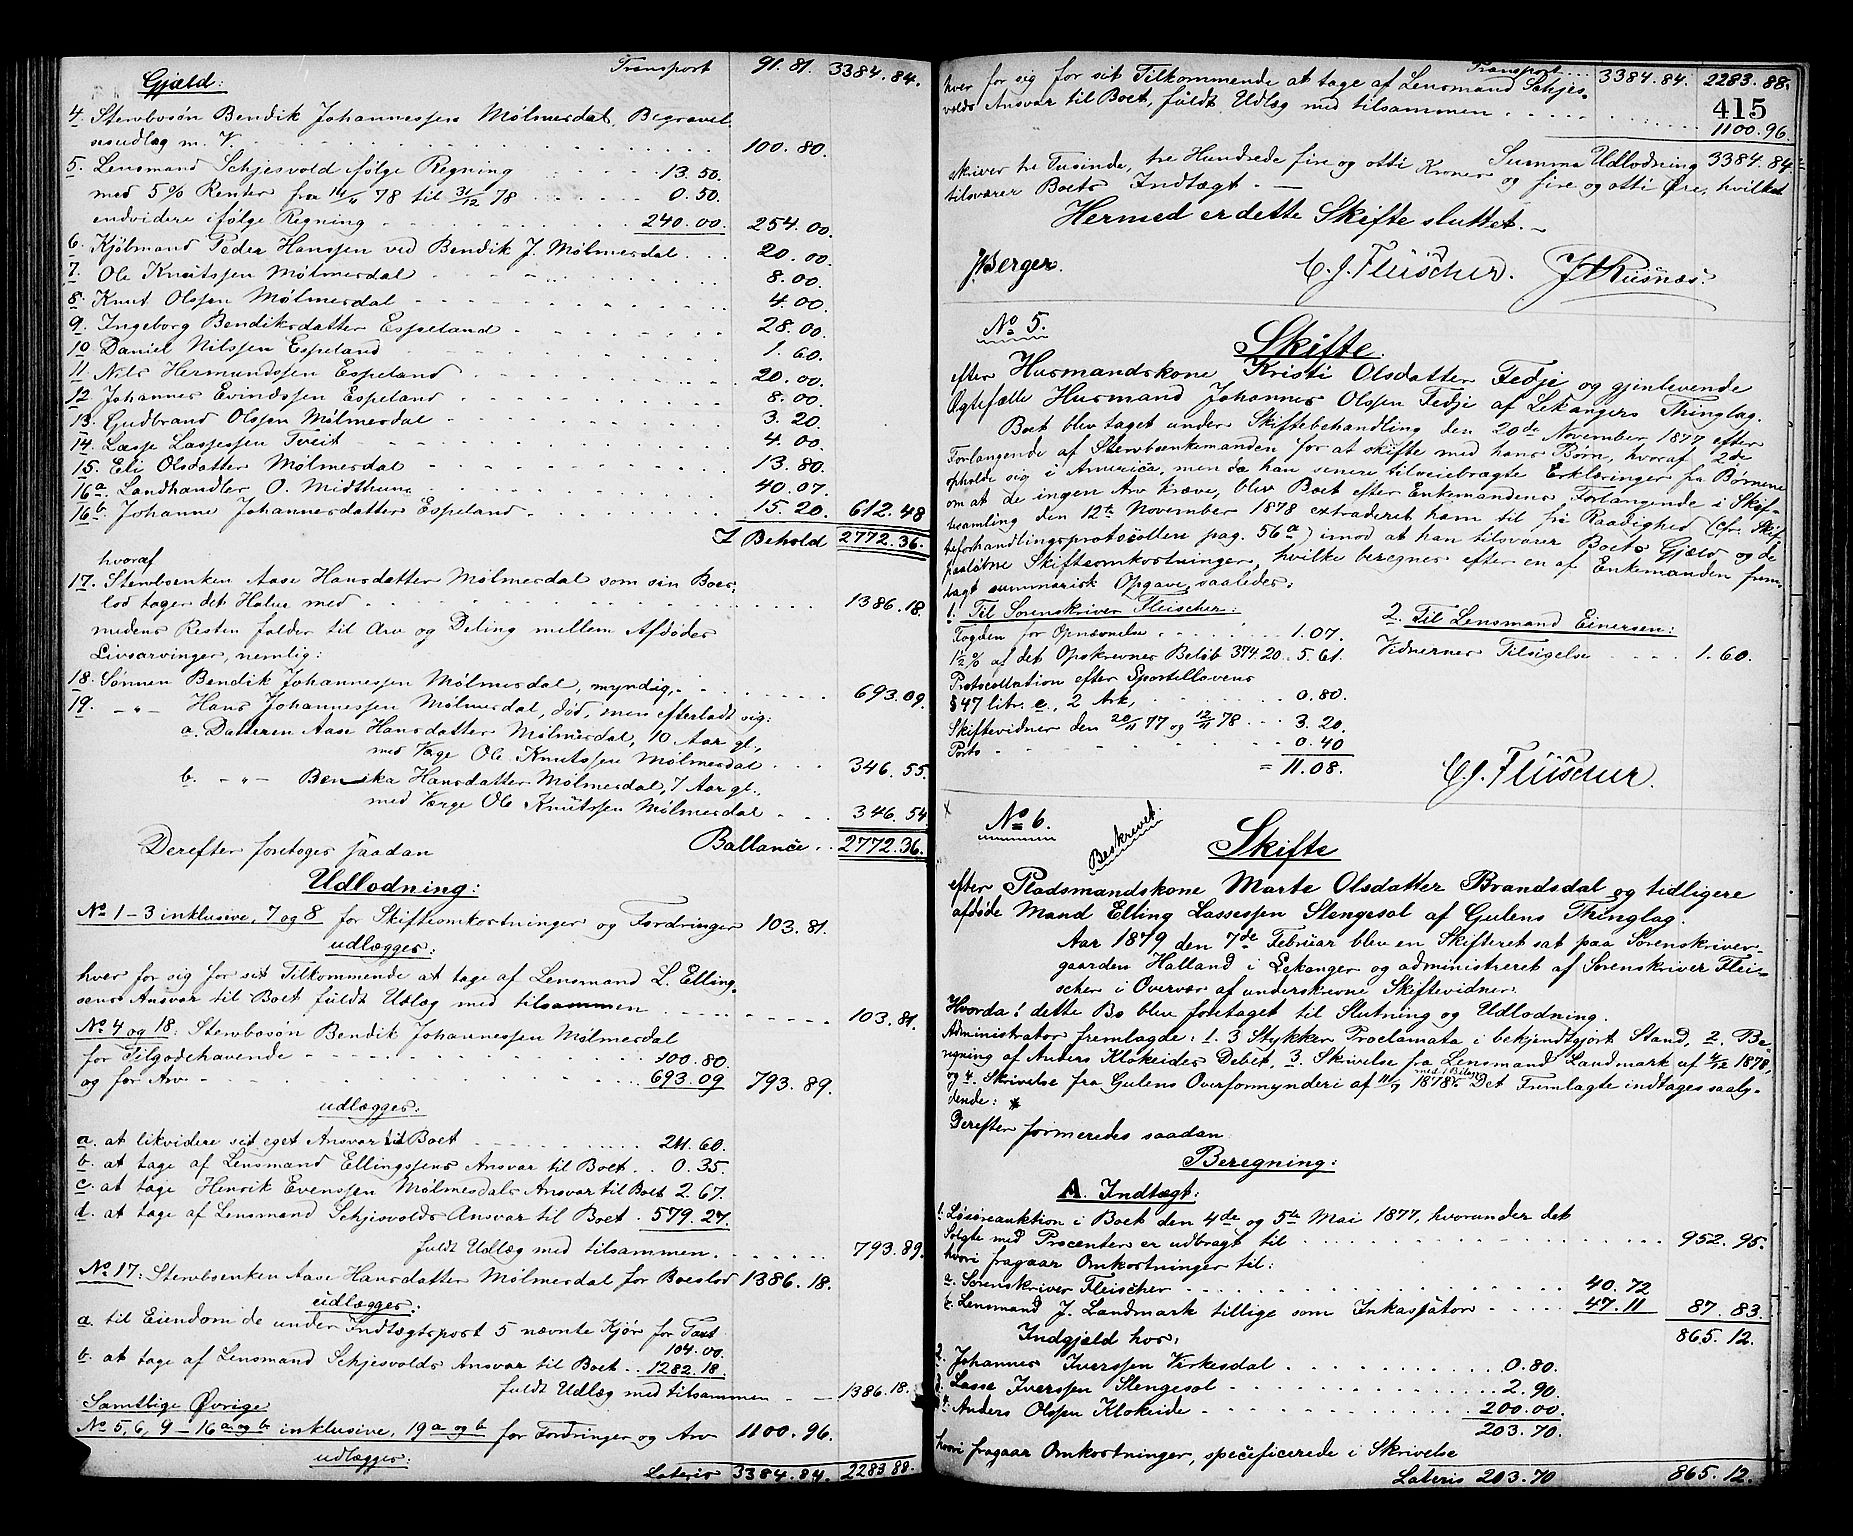 Transport 91.81. 3384.84.
Gjæld:
4. Stervbosøn Bendik Johannessen Mølmesdal, Begravel-
sesudlæg m. V. 100.80.
5. Lensmand Schjesvold ifølge Regning 13.50.
med 5 % Renter fra 14/11 78 til 31/12 78 0.50.
endvidere ifølge Regning 240.00. 254.00.
6. Kjøbmand Peder Hanssen ved Bendik J. Mølmesdal 20.00.
7. Ole Knutssen Mølmesdal 8.00.
8. Knut Olssen Mølmesdal 4.00.
9. Ingeborg Bendiksdatter Espeland 28.00.
10. Daniel Nilssen Espeland 1.60.
11. Nils Hermundssen Espeland 20.00.
12. Johannes Evindssen Espeland 8.00.
13. Gudbrand Olssen Mølmesdal 3.20.
14. Lasse Lassessen Tveit 4.00.
15. Eli Olsdatter Mølmesdal 13.80.
16a. Landhandler O. Midthun 40.07.
16b. Johanne Johannesdatter Espeland 15.20. 612.48
I Behold 2772.36.
hvoraf
17. Stervbenken Aase Hansdatter Mølmesdal som sin Boes-
lod tager det Halve med 1386.18.
medens Resten falder til Arv og Deling mellem Afdødes
Livsarvinger, nemlig:
18. Sønnen Bendik Johannessen Mølmesdal, myndig, 693.09.
19. -"- Hans Johannessen Mølmesdal, død, men efterladt sig:
a. Datteren Aase Hansdatter Mølmesdal, 10 Aar gl.,
med Værge Ole Knutssen Mølmesdal 346.55.
b. -"- Benika Hansdatter Mølmesdal, 7 Aar gl.,
med Værge Ole Knutssen Mølmesdal 346.54
Ballance 2772.36.
Derefter foretoges saadan
Udlodning:
No 1-3 inklusive, 7 og 8 for Skifteomkostninger og Fordringer 103.81.
udlægges:
hver for sig for sit Tilkommende at tage af Lensmand L. Elling-
sens Ansvar til Boet fuldt Udlæg med tilsammen 103.81.
No 4 og 18: Stervbosøn Bendik Johannessen Mølmesdal
for Tilgodehavende 100.80
og for Arv 693.09 793.89.
udlægges:
a. at likvidere sit eget Ansvar til Boet 211.60.
b. at tage af Lensmand Ellingssens Ansvar til Boet 0.35.
c. at tage Henrik Evenssen Mølmesdals Ansvar til Boet 2.67.
d. at tage af Lensmand Schjesvolds Ansvar til Boet 579.27.
fuldt Udlæg med tilsammen 793.89.
No 17: Stervbenken Aase Hansdatter Mølmesdal for Boeslod 1386.18.
udlægges:
a. til Eiendom de under Indtægtspost 5 nævnte Kjør for Taxt
104.00.
b. at tage af Lensmand Schjesvolds Ansvar til Boet 1282.18.
fuldt Udlæg med tilsammen 1386.18.
Samtlige Øvrige
No 5, 6, 9 - 16 a og b inklusive, 19 a og b for Fordringer og Arv 1100.96.
udlægges:
Lateris 3384.84. 2283.88.
Transport 3384.84. 2283.88.
415
hver for sig for sit Tilkommende at tage af Lensmand Schjes-
volds Ansvar til Boet, fuldt Udlæg med tilsammen 1100.96.
Summa Udlodning 3384.84
skriver tre Tusinde, tre Hundrede fire og otti Kroner og fire og otti Øre, hvilket
tilsvarer Boets Indtægt.
Hermed er dette Skifte sluttet.
J. Berger. C. J. Fleischer.
No 5.
Skifte
efter Husmandskone Kristi Olsdatter Fedje og gjenlevende
Ægtefælle Husmand Johannes Olssen Fedje af Lekangers Thinglag.
Boet blev taget under Skiftebehandling den 20de November 1877 efter
Forlangende af Stervboenkemanden for at skifte med hans Børn, hvoraf 2de
opholde sig i America, men da han senere tilveiebragte Erklæringer fra Børnene
om at de ingen Arv kræve, blev Boet efter Enkemandens Forlangende i Skif-
tesamling den 12te November 1878 extraderet ham til fri Raadighed (cfr. Skif-
teforhandlingsprotocollen pag. 56a) imod at han tilsvarer Boets Gjæld og de
paaløbne Skifteomkostninger, hvilke beregnes efter en af Enkemanden frem-
lagt summarisk Opgave saaledes:
1. Til Sorenskriver Fleischer:
Fogden for Opnævnelse 1.07.
1 1/2 % af det Opskrevnes Beløb 374.20 5.61.
Protocollation efter Sportellovens
§ 47 litr. e, 2 Ark, 0.80.
Skiftevidner den 20/11 77 og 12/11 78 3.20.
Porto 0.40
= 11.08.
2. Til Lensmand Einersen:
Vidnernes Tilsigelse 1.60.
C. J. Fleischer.
x No 6.
Beskrevet.
Skifte
efter Pladsmandskone Marte Olsdatter Brandsdal og tidligere
afdøde Mand Elling Lassessen Slengesol af Gulens Thinglag.
Aar 1879 den 7de Februar blev en Skifteret sat paa Sorenskriver-
gaarden Halland i Lekanger og administreret af Sorenskriver Flei-
scher i Overvær af underskrevne Skiftevidner.
Hvorda: dette Bo blev foretaget til Slutning og Udlodning.
Administrator fremlagde: 1. 3 Stykker Proclamata i bekjendtgjort Stand, 2. Be-
regning af Anders Klokeides Debet, 3. Skrivelse fra Lensmand Landmark af 4/12 1878,
og 4. Skrivelse fra Gulens Overformynderi af 1878 med 1 Bilag. Det Fremlagte indtages saaly-
dende: *
Derefter formeredes saadan
Beregning:
A. Indtægt:
1. Løsøreauktion i Boet den 4de og 5te Mai 1877, hvorunder det
Solgte med Procenter er udbragt til 952.95.
hvori fragaar Omkostninger til:
a. Sorenskriver Fleischer 40.72
b. Lensmand J. Landmark tillige som Inkassator 47.11 87.83.
865.12.
Indgjæld hos:
2. Johannes Iverssen Virkesdal 0.80.
3. Lasse Iverssen Slengesol 2.90.
4. Anders Olssen Klokeide 200.00.
203.70.
hvori fragaar Omkostninger, specificerede i Skrivelse
Lateris 203.70 865.12.